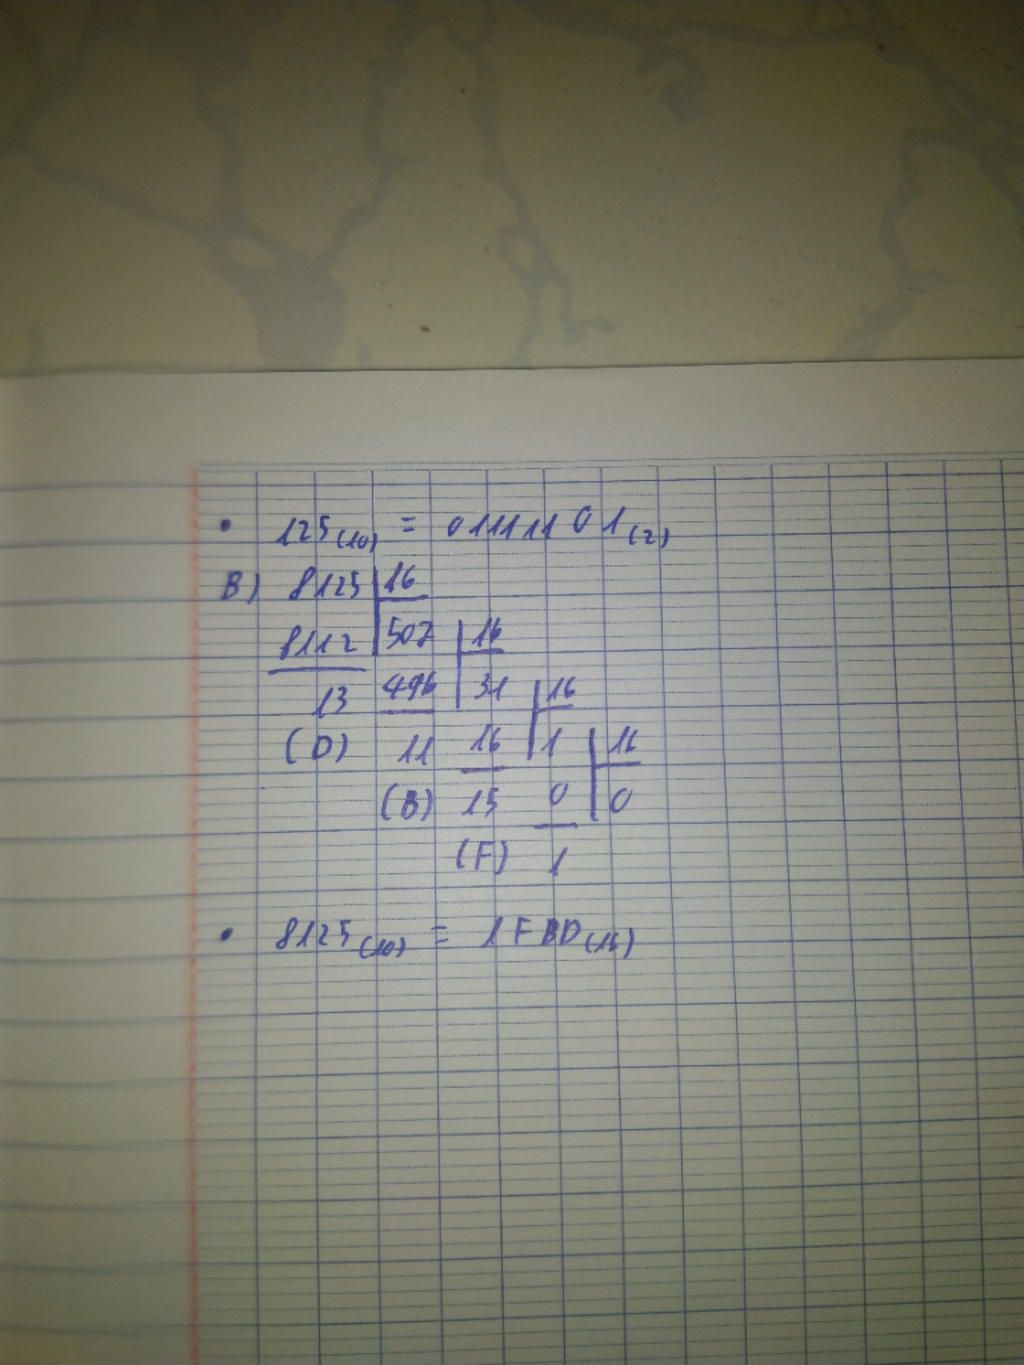 • 125(10) = 01111101(2)
B) 8125 16
8112 507 16
13 496 31 16
(D) 11 16 1 16
(B) 15 0 0
(F) 1
• 8125(10) = 1FBD(16)